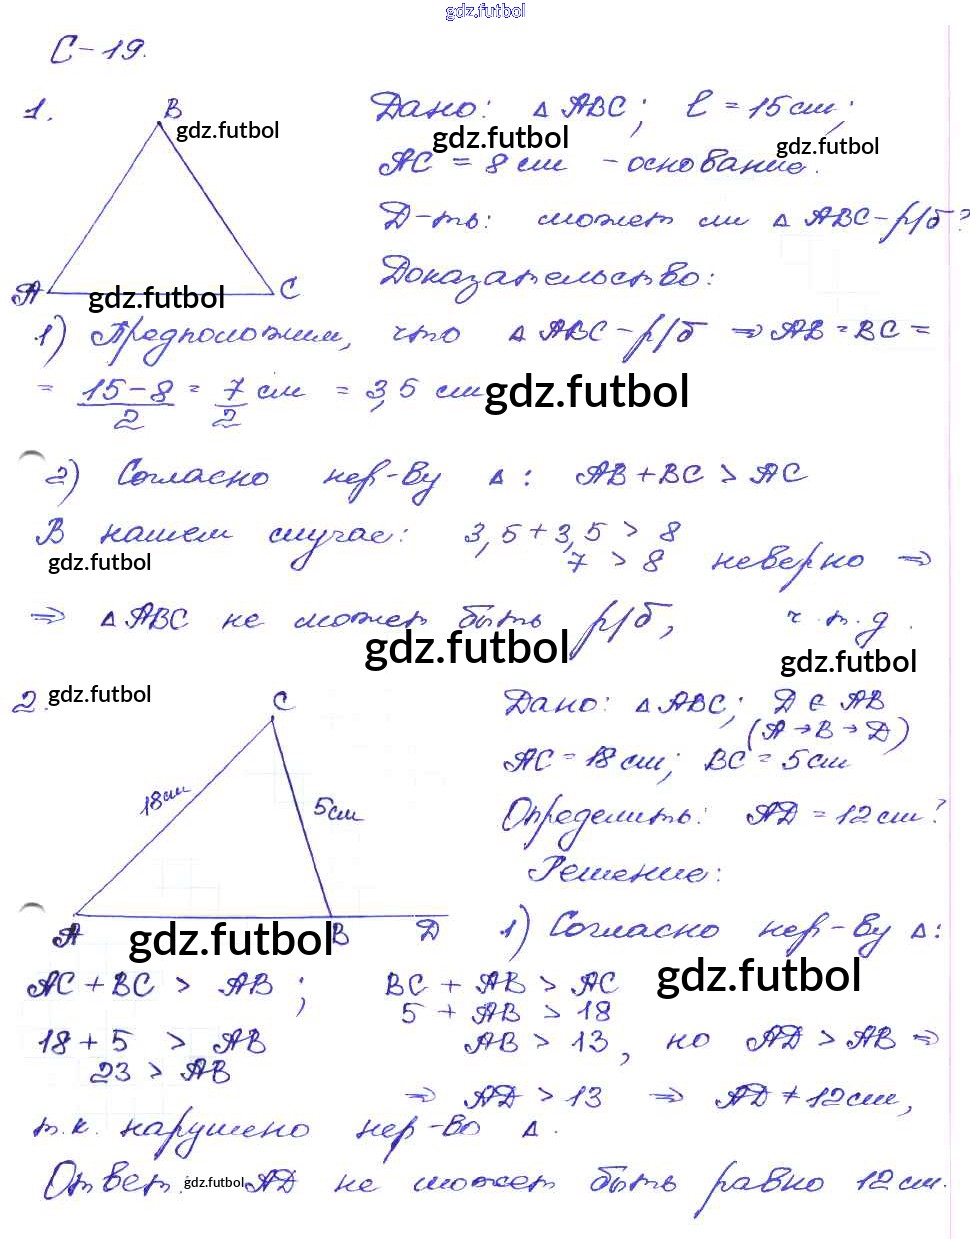 gdz.futbol
С-19.
1.
B
gdz.futbol
Дано: Δ ABC; l = 15 см;
gdz.futbol
gdz.futbol
AC = 8 см - основание.
Д-ть: может ли Δ ABC - р/б?
Доказательство:
A gdz.futbol C
1) Предположим, что Δ ABC - р/б ⇒ AB = BC =
= (15-8)/2 = 7/2 см = 3,5 см
gdz.futbol
2) Согласно нер-ву Δ: AB + BC > AC
В нашем случае: 3,5 + 3,5 > 8
gdz.futbol
7 > 8 неверно ⇒
⇒ Δ ABC не может быть р/б, ч.т.д.
gdz.futbol
gdz.futbol
2.
gdz.futbol
C
Дано: Δ ABC; D ∈ AB
(A → B → D)
AC = 18 см; BC = 5 см
18 см
5 см
Определить: AD = 12 см?
Решение:
A gdz.futbol B D
1) Согласно нер-ву Δ:
gdz.futbol
AC + BC > AB; BC + AB > AC
5 + AB > 18
18 + 5 > AB AB > 13, но AD > AB ⇒
23 > AB
⇒ AD > 13 ⇒ AD ≠ 12 см,
т.к. нарушено нер-во Δ.
Ответ: gdz.futbol AD не может быть равно 12 см.